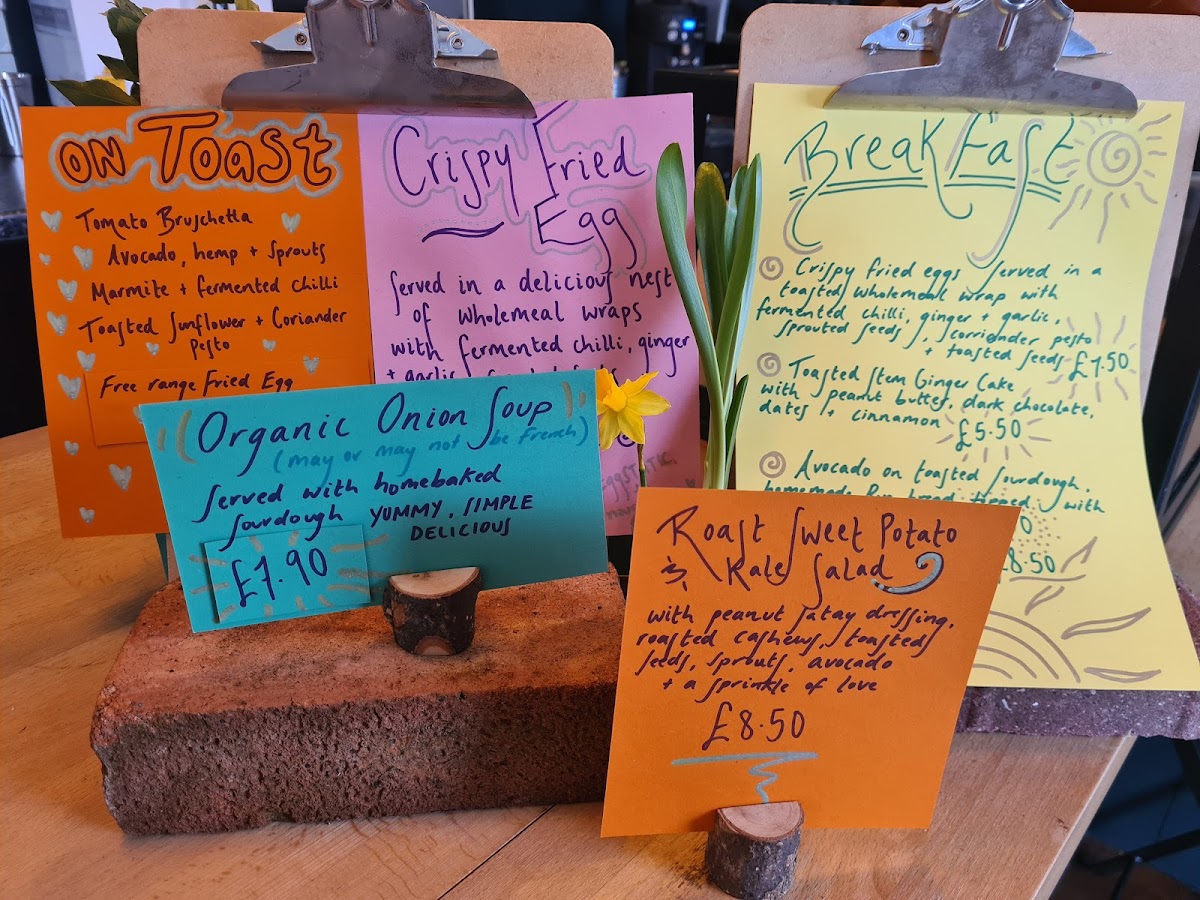 ON Toast
Tomato Bruschetta
Avocado, hemp + sprouts
Marmite + fermented chilli
Toasted Sunflower + Coriander
Pesto
Free range Fried Egg
Crispy Fried
Egg
Served in a delicious nest
of wholemeal wraps
with fermented chilli, ginger
+ garlic,
Organic Onion Soup
(may or may not be French)
Served with homebaked
Sourdough YUMMY, SIMPLE
DELICIOUS
£7.90
BreakFast
Crispy fried eggs served in a
toasted wholemeal wrap with
fermented chilli, ginger + garlic,
sprouted seeds, corriander pesto
+ toasted seeds £7.50
Toasted Stem Ginger Cake
with peanut butter, dark chocolate,
dates + cinnamon
£5.50
Avocado on toasted sourdough,
homemade bread topped with
£8.50
Roast Sweet Potato
& Kale Salad
with peanut satay dressing,
roasted cashews, toasted
seeds, sprouts, avocado
+ a sprinkle of love
£8.50